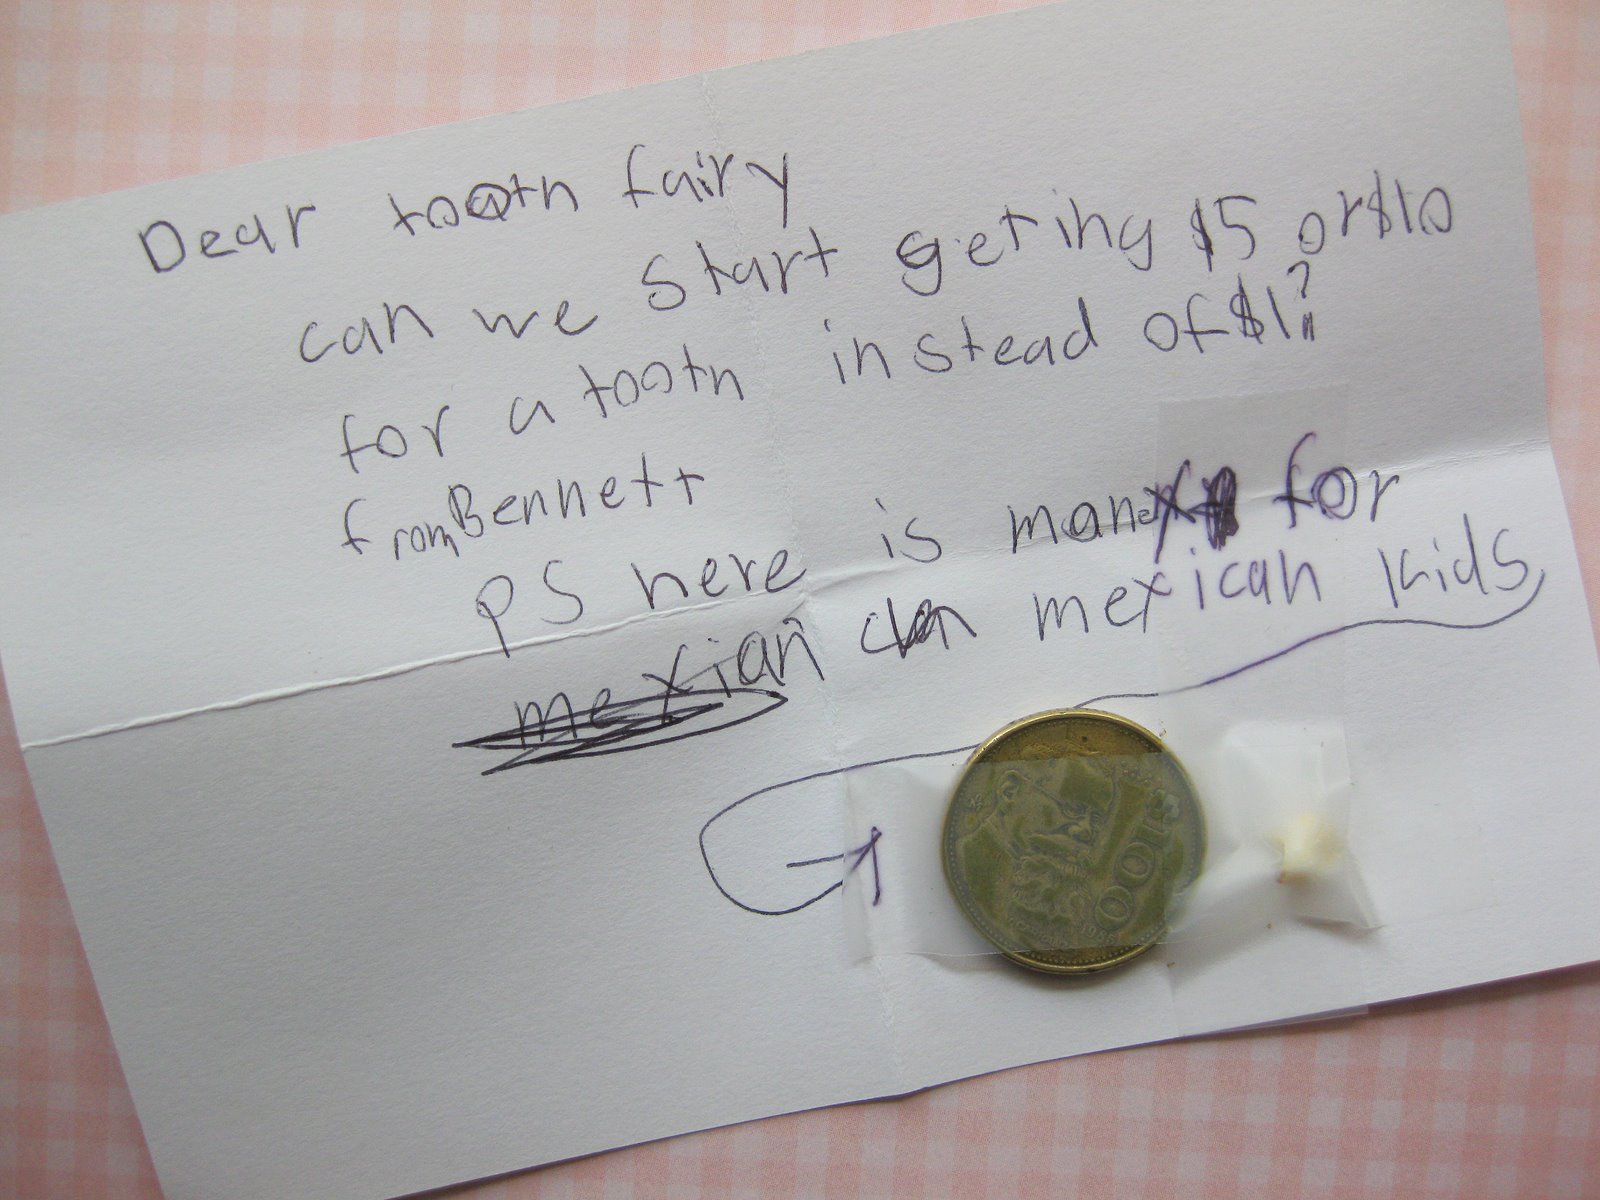 Dear tooth fairy
can we start geting $5 or $10
for a tooth in stead of $1?
from Bennett
PS here is for
mexican kids
$100
1985